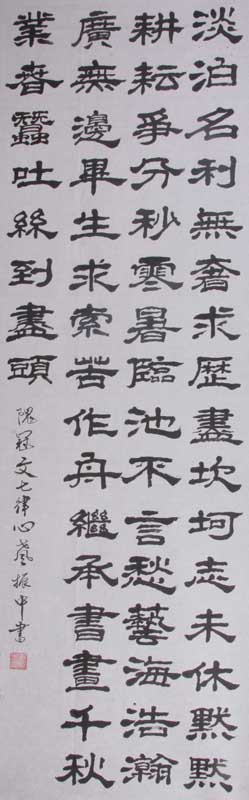 淡泊名利無奢求歷盡坎坷志未休默默
耕耘爭分秒雲暑臨池不言愁藝海浩瀚
廣無邊畢生求索苦作舟繼承書畫千秋
業春蠶吐絲到盡頭
隗文七律心聲振中書